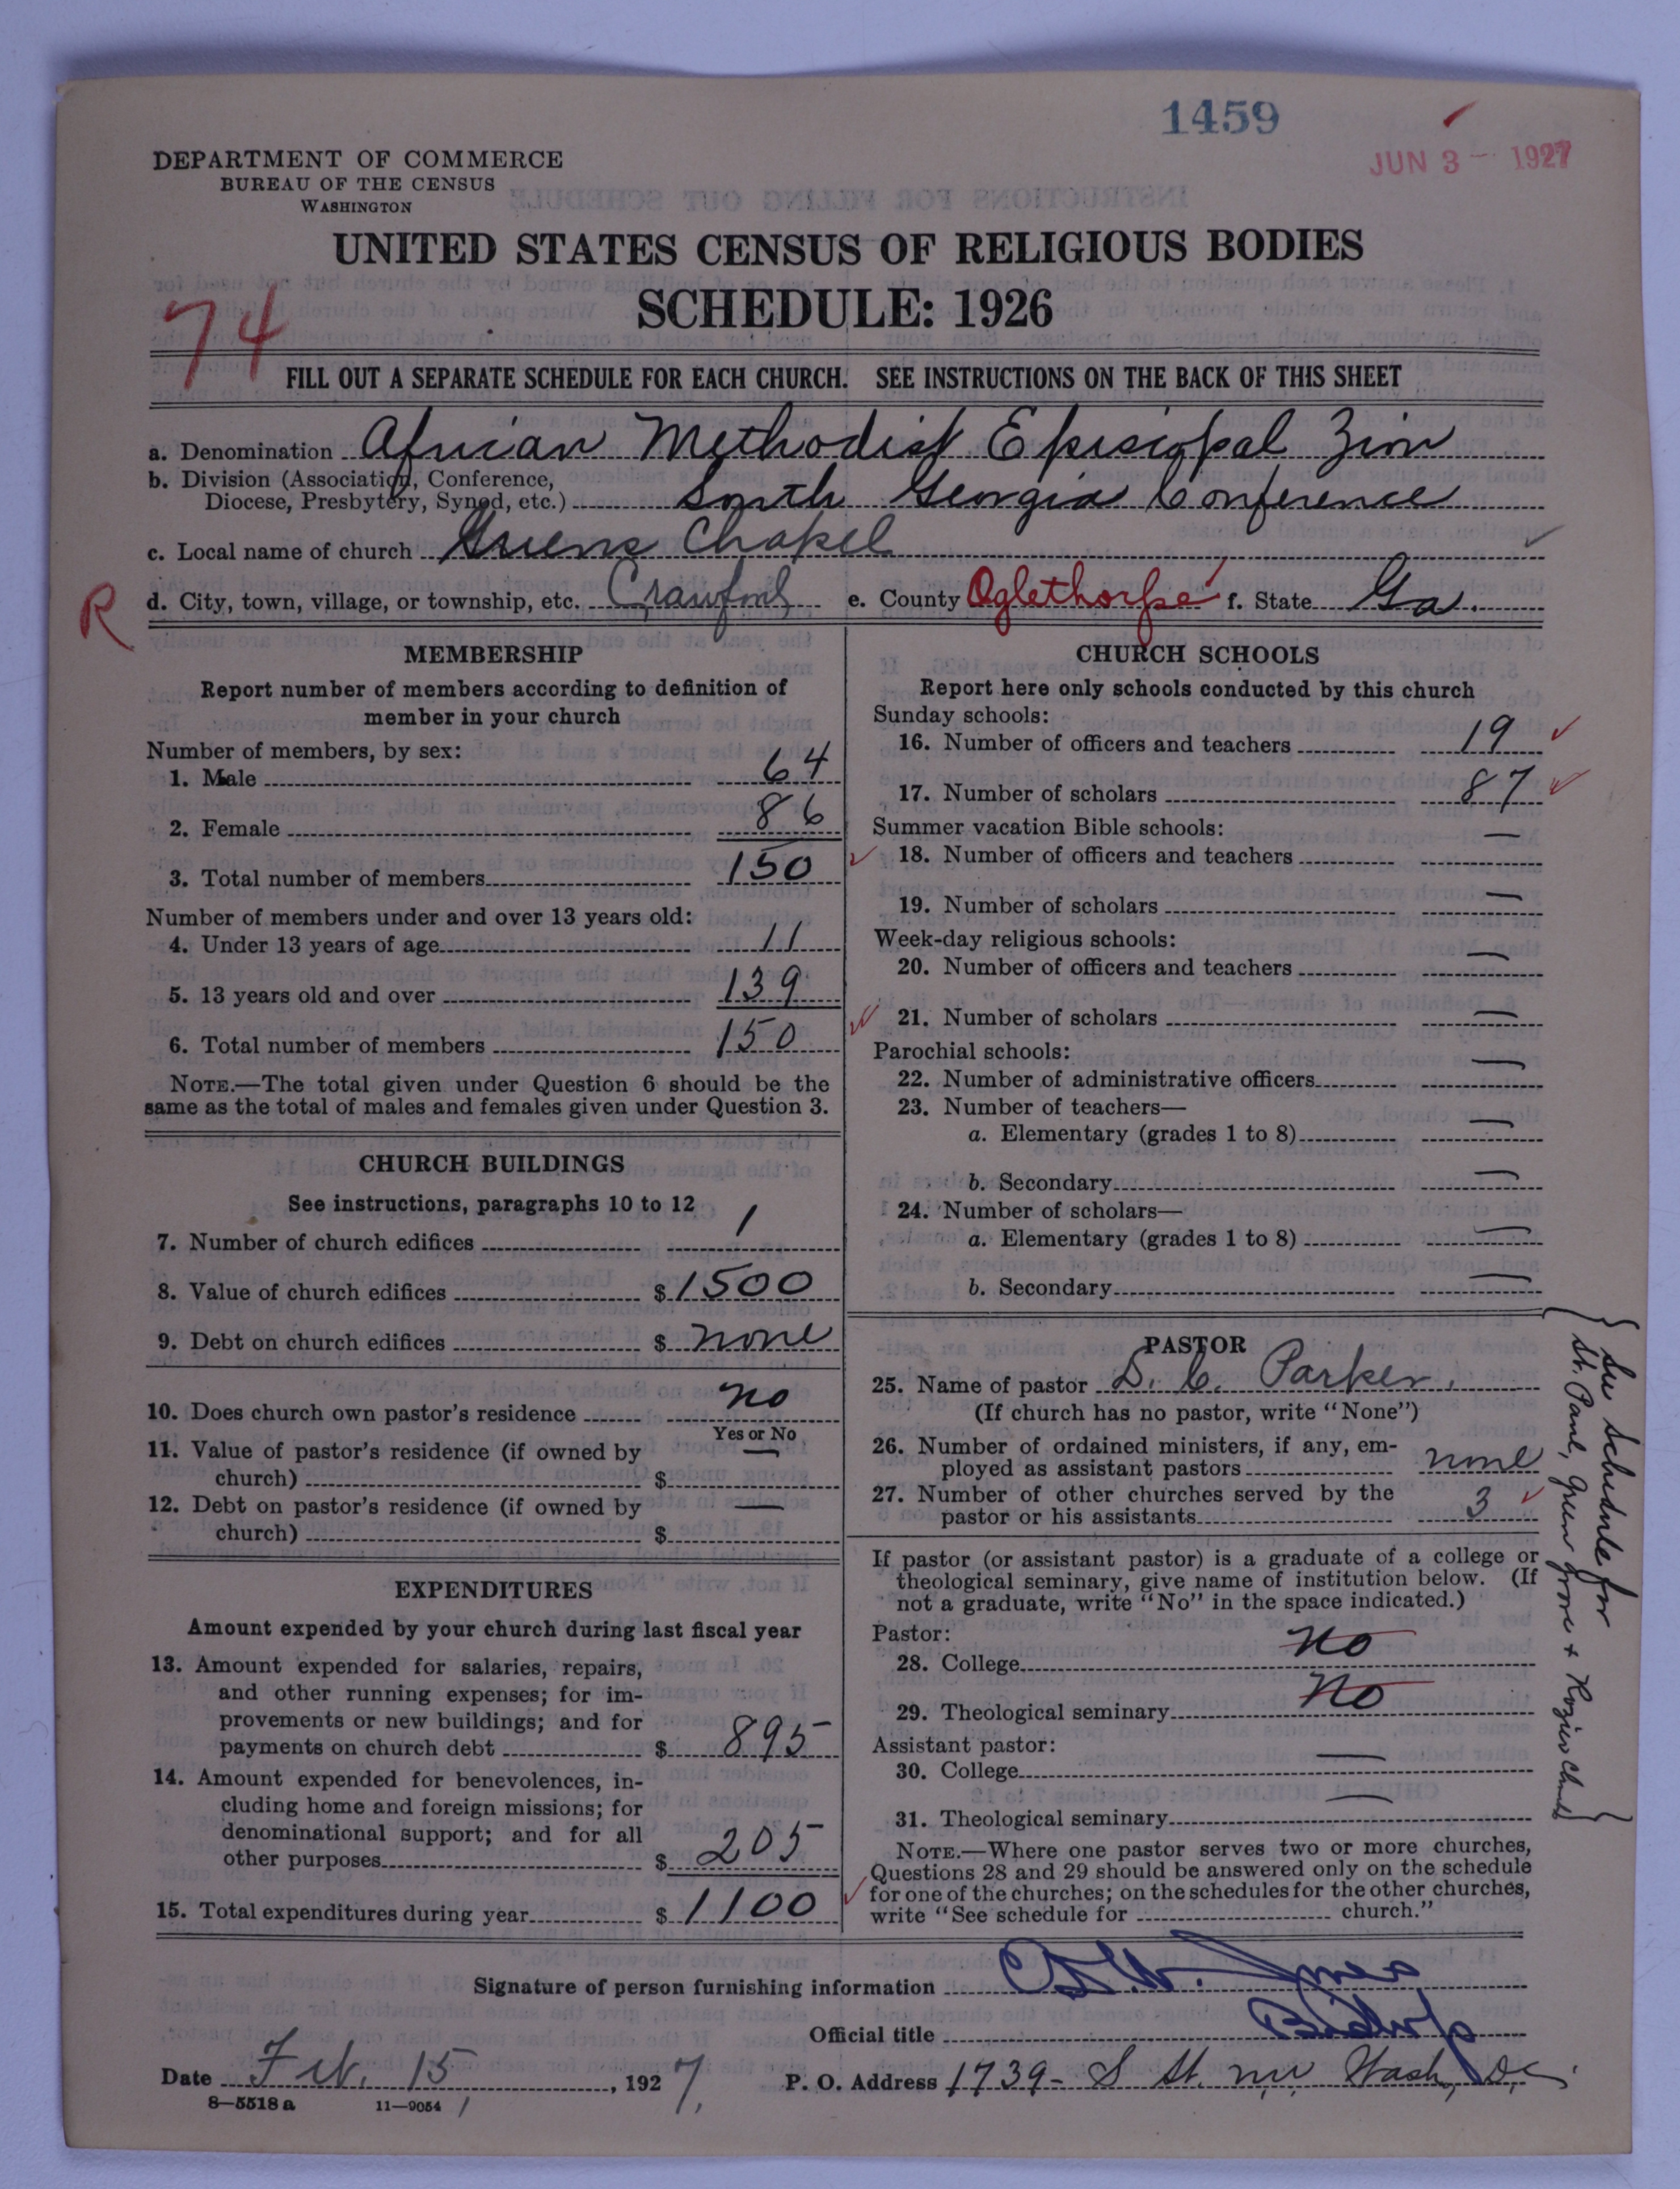 1459
JUN 3 - 1927
DEPARTMENT OF COMMERCE
BUREAU OF THE CENSUS
WASHINGTON
UNITED STATES CENSUS OF RELIGIOUS BODIES
SCHEDULE: 1926
74
FILL OUT A SEPARATE SCHEDULE FOR EACH CHURCH. SEE INSTRUCTIONS ON THE BACK OF THIS SHEET
a. Denomination African Methodist Episcopal Zion
b. Division (Association, Conference,
Diocese, Presbytery, Synod, etc.) South Georgia Conference
c. Local name of church Greens Chapel
R
d. City, town, village, or township, etc. Crawford e. County Oglethorpe f. State Ga.
MEMBERSHIP
Report number of members according to definition of
member in your church
Number of members, by sex:
1. Male 64
2. Female 86
3. Total number of members 150
Number of members under and over 13 years old:
4. Under 13 years of age 11
5. 13 years old and over 139
6. Total number of members 150
NOTE.—The total given under Question 6 should be the
same as the total of males and females given under Question 3.
CHURCH BUILDINGS
See instructions, paragraphs 10 to 12
7. Number of church edifices 1
8. Value of church edifices $ 1500
9. Debt on church edifices $ none
10. Does church own pastor's residence no
Yes or No
11. Value of pastor's residence (if owned by
church) $ —
12. Debt on pastor's residence (if owned by
church) $ —
EXPENDITURES
Amount expended by your church during last fiscal year
13. Amount expended for salaries, repairs,
and other running expenses; for im-
provements or new buildings; and for
payments on church debt $ 895
14. Amount expended for benevolences, in-
cluding home and foreign missions; for
denominational support; and for all
other purposes $ 205
15. Total expenditures during year $ 1100
CHURCH SCHOOLS
Report here only schools conducted by this church
Sunday schools:
16. Number of officers and teachers 19
17. Number of scholars 87
Summer vacation Bible schools:
18. Number of officers and teachers —
19. Number of scholars —
Week-day religious schools:
20. Number of officers and teachers —
21. Number of scholars —
Parochial schools:
22. Number of administrative officers —
23. Number of teachers—
a. Elementary (grades 1 to 8) —
b. Secondary —
24. Number of scholars—
a. Elementary (grades 1 to 8) —
b. Secondary —
PASTOR
25. Name of pastor D. C. Parker.
(If church has no pastor, write "None")
26. Number of ordained ministers, if any, em-
ployed as assistant pastors none
27. Number of other churches served by the
pastor or his assistants 3
If pastor (or assistant pastor) is a graduate of a college or
theological seminary, give name of institution below. (If
not a graduate, write "No" in the space indicated.)
Pastor:
28. College no
29. Theological seminary no
Assistant pastor:
30. College —
31. Theological seminary —
NOTE.—Where one pastor serves two or more churches,
Questions 28 and 29 should be answered only on the schedule
for one of the churches; on the schedules for the other churches,
write "See schedule for church."
See schedule for
St. Paul, Green Grove +
Signature of person furnishing information
Official title Bishop
Date Feb. 15, 1927. P. O. Address 1739- S St. nw Wash, D.C.
8—5518 a 11—9054